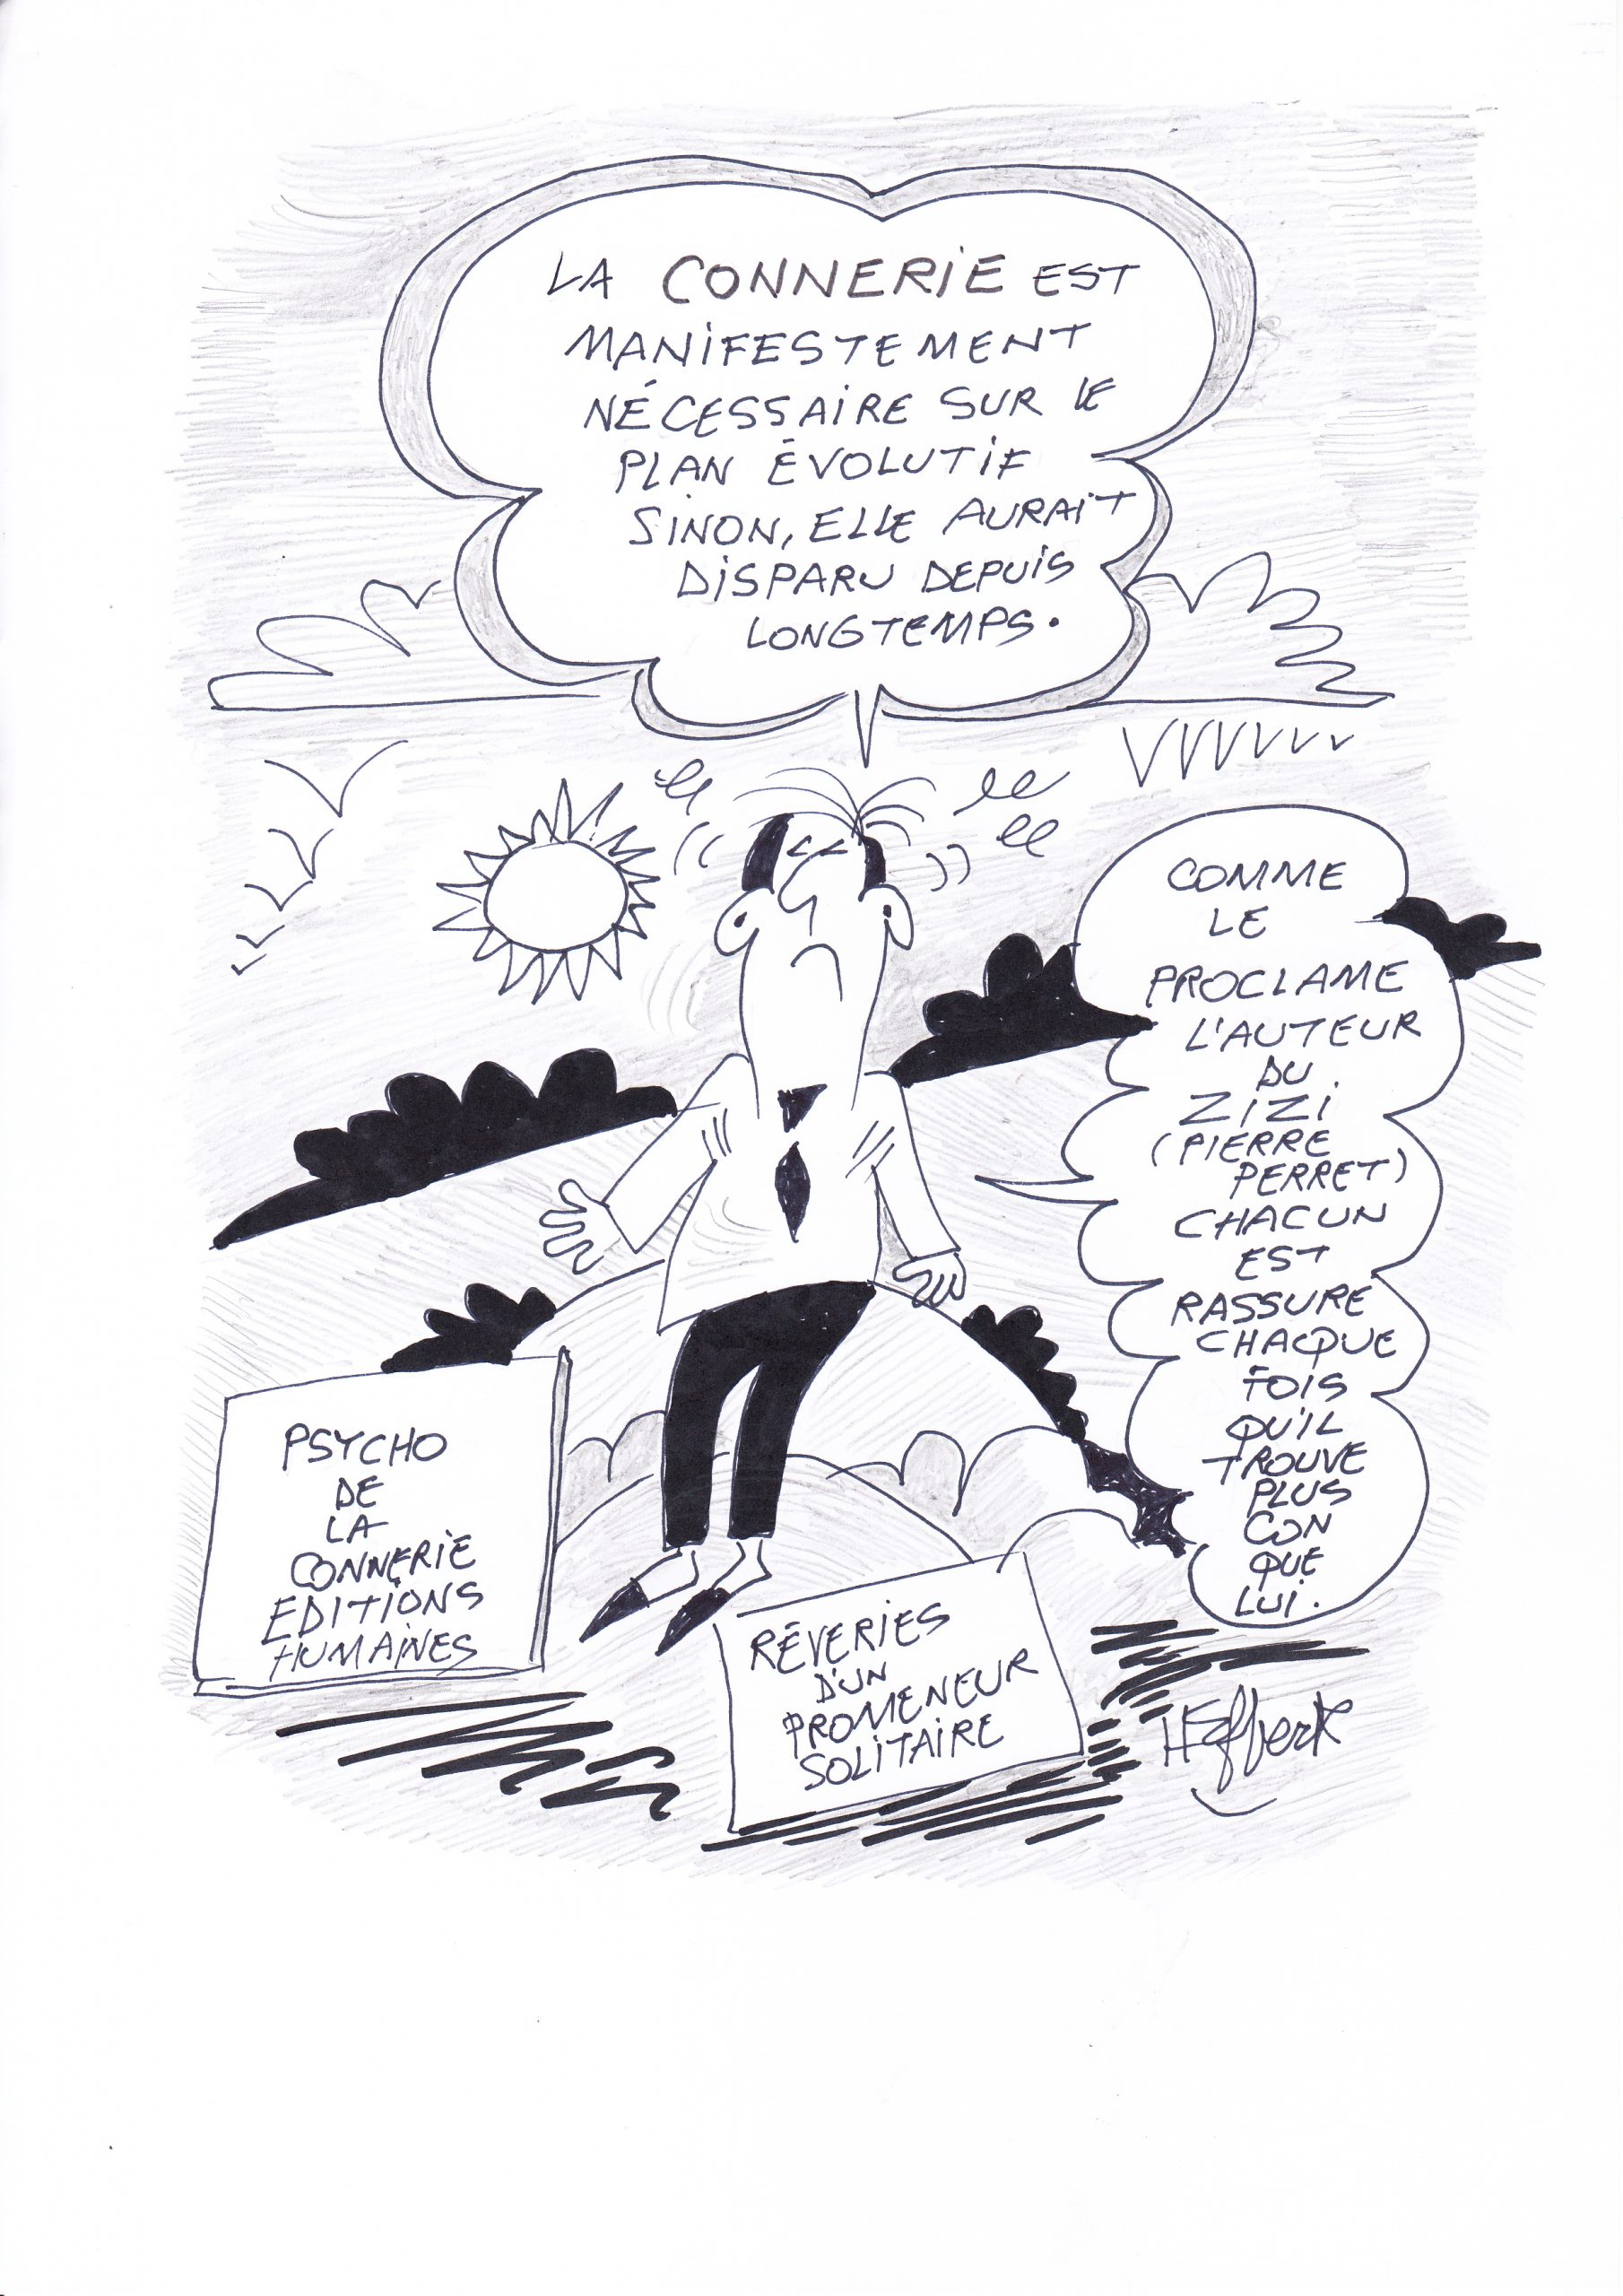 LA CONNERIE EST
MANIFESTEMENT
NÉCESSAIRE SUR LE
PLAN ÉVOLUTIF
SINON, ELLE AURAIT
DISPARU DEPUIS
LONGTEMPS.
COMME
LE
PROCLAME
L'AUTEUR
DU
ZIZI
(PIERRE
PERRET)
CHACUN
EST
RASSURE
CHAQUE
FOIS
QU'IL
TROUVE
PLUS
CON
QUE
LUI.
PSYCHO
DE
LA
CONNERIE
EDITIONS
HUMAINES
RÊVERIES
D'UN
PROMENEUR
SOLITAIRE